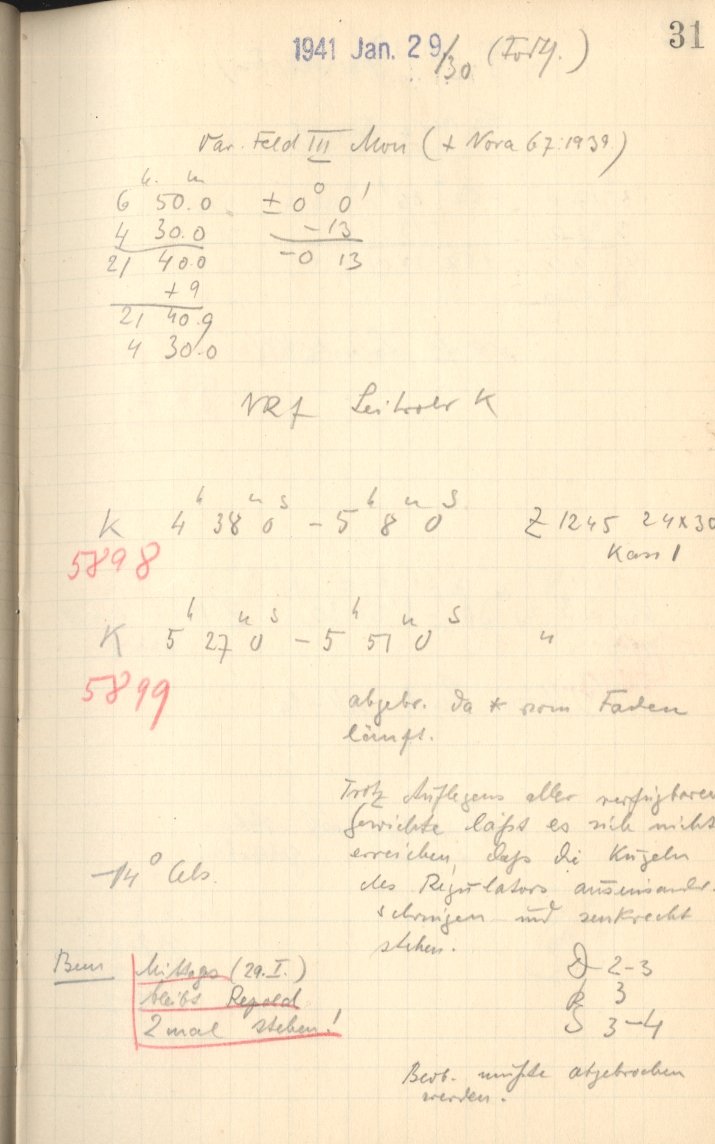 31
1941 Jan. 29/30 (Forts.)
Var. Feld III Mon (+ Nova 67.1939.)
h m
6 50.0 ±0° 0'
4 30.0 -13
21 40.0 -0 13
+9
21 40.9
4 30.0
NRf Leitrohr K
K 4h 38m 0s - 5h 8m 0s Z 1245 24x30
5898 Kass 1
K 5h 27m 0s - 5h 51m 0s "
5899
abgebr. da * vom Faden
läuft.
Trotz Auflegens aller verfügbaren
Gewichte läßt es sich nicht
erreichen, daß die Kugeln
-14° Cels. des Regulators auseinander-
schwingen und senkrecht
stehen.
Bem Mittags (29.I.) D 2-3
bleibt Repsold R 3
2 mal stehen! S 3-4
Beob. mußte abgebrochen
werden.